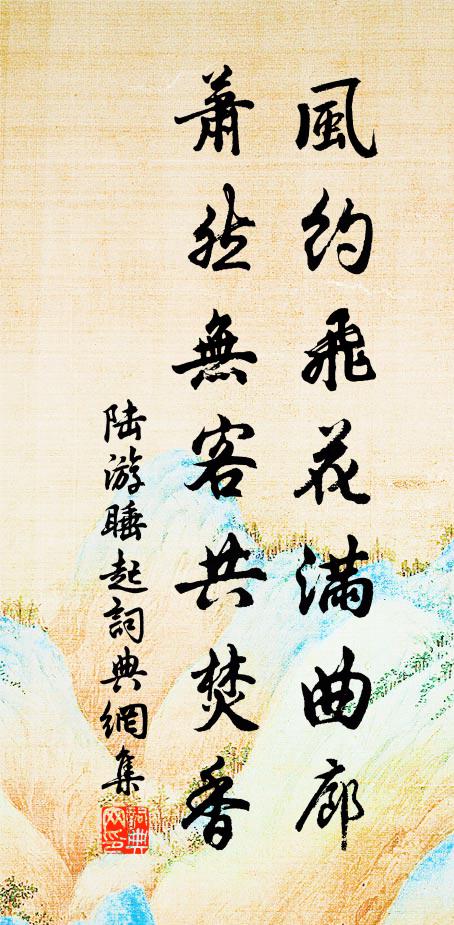 風約飛花滿曲廊
蕭然無客共焚香
陸游睡起詞典網集
詞典
网印